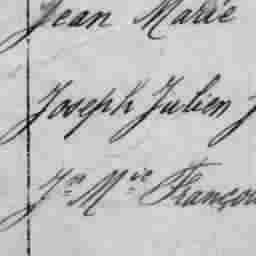 Jean Marie
Joseph Julien J
Jn Mie Françoi